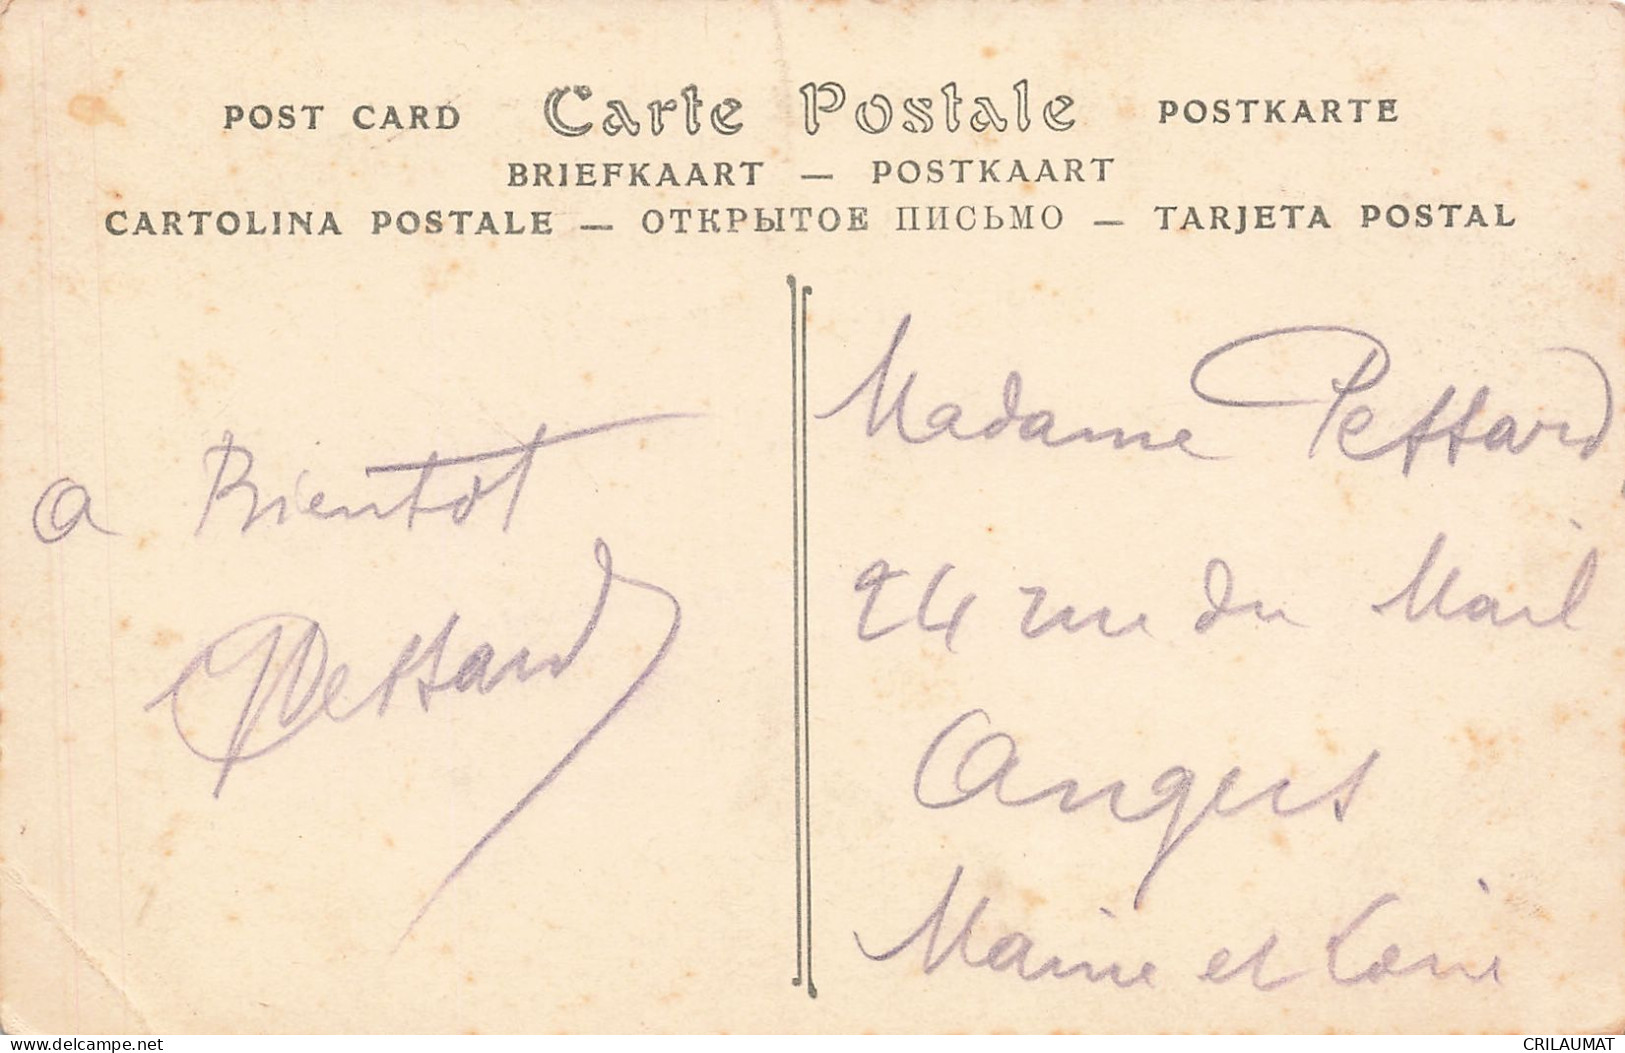 POST CARD Carte Postale POSTKARTE
BRIEFKAART — POSTKAART
CARTOLINA POSTALE — ОТКРЫТОЕ ПИСЬМО — TARJETA POSTAL
a Bientot
Pettard
Madame Pettard
24 rue du Mail
Angers
Maine et Loire
www.delcampe.net
CRILAUMAT